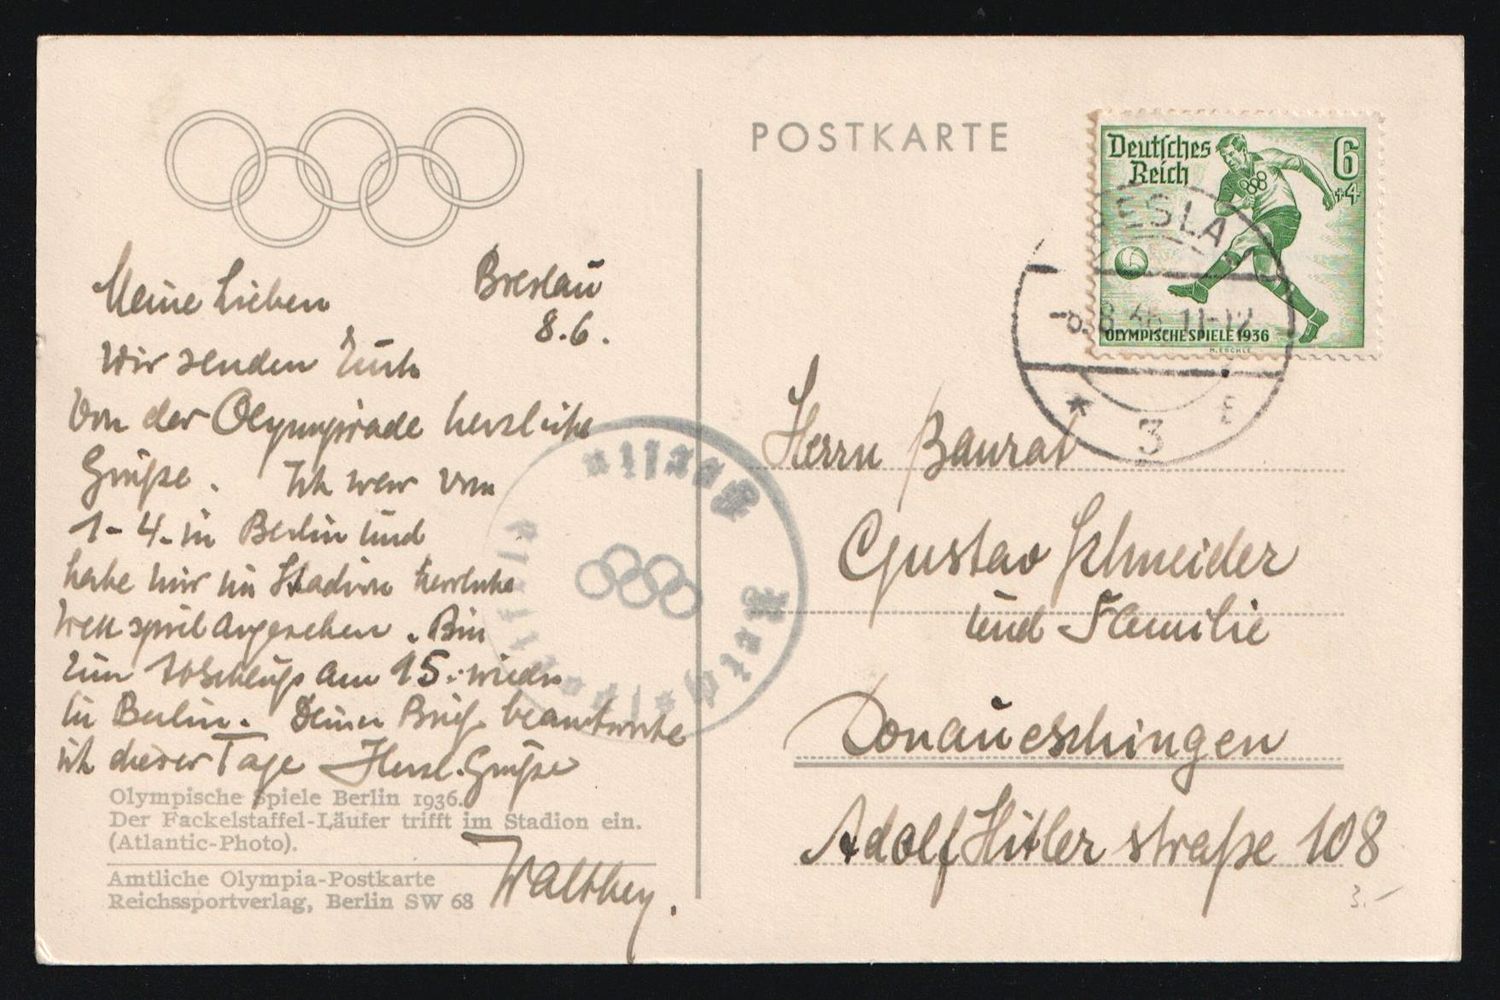 POSTKARTE
Deutsches
Reich
6
+4
OLYMPISCHE SPIELE 1936
ESLA
8.36 11-12
* 3 E
Meine Lieben
Breslau
8.6.
Wir senden Euch
Von der Olympiade herzliche
Grüße. Ich war vom
1-4. in Berlin und
habe mir im Stadion herrliche
Wettspiel angesehen. Bin
zum Schluß am 15. wieder
in Berlin. Deinen Brief beantworte
ich dieser Tage Herzl. Grüße
Walther.
Olympische Spiele Berlin 1936.
Der Fackelstaffel-Läufer trifft im Stadion ein.
(Atlantic-Photo).
Amtliche Olympia-Postkarte
Reichssportverlag, Berlin SW 68
Herrn Baurat
Gustav Schneider
und Familie
Donaueschingen
Adolf Hitler straße 108
3.-